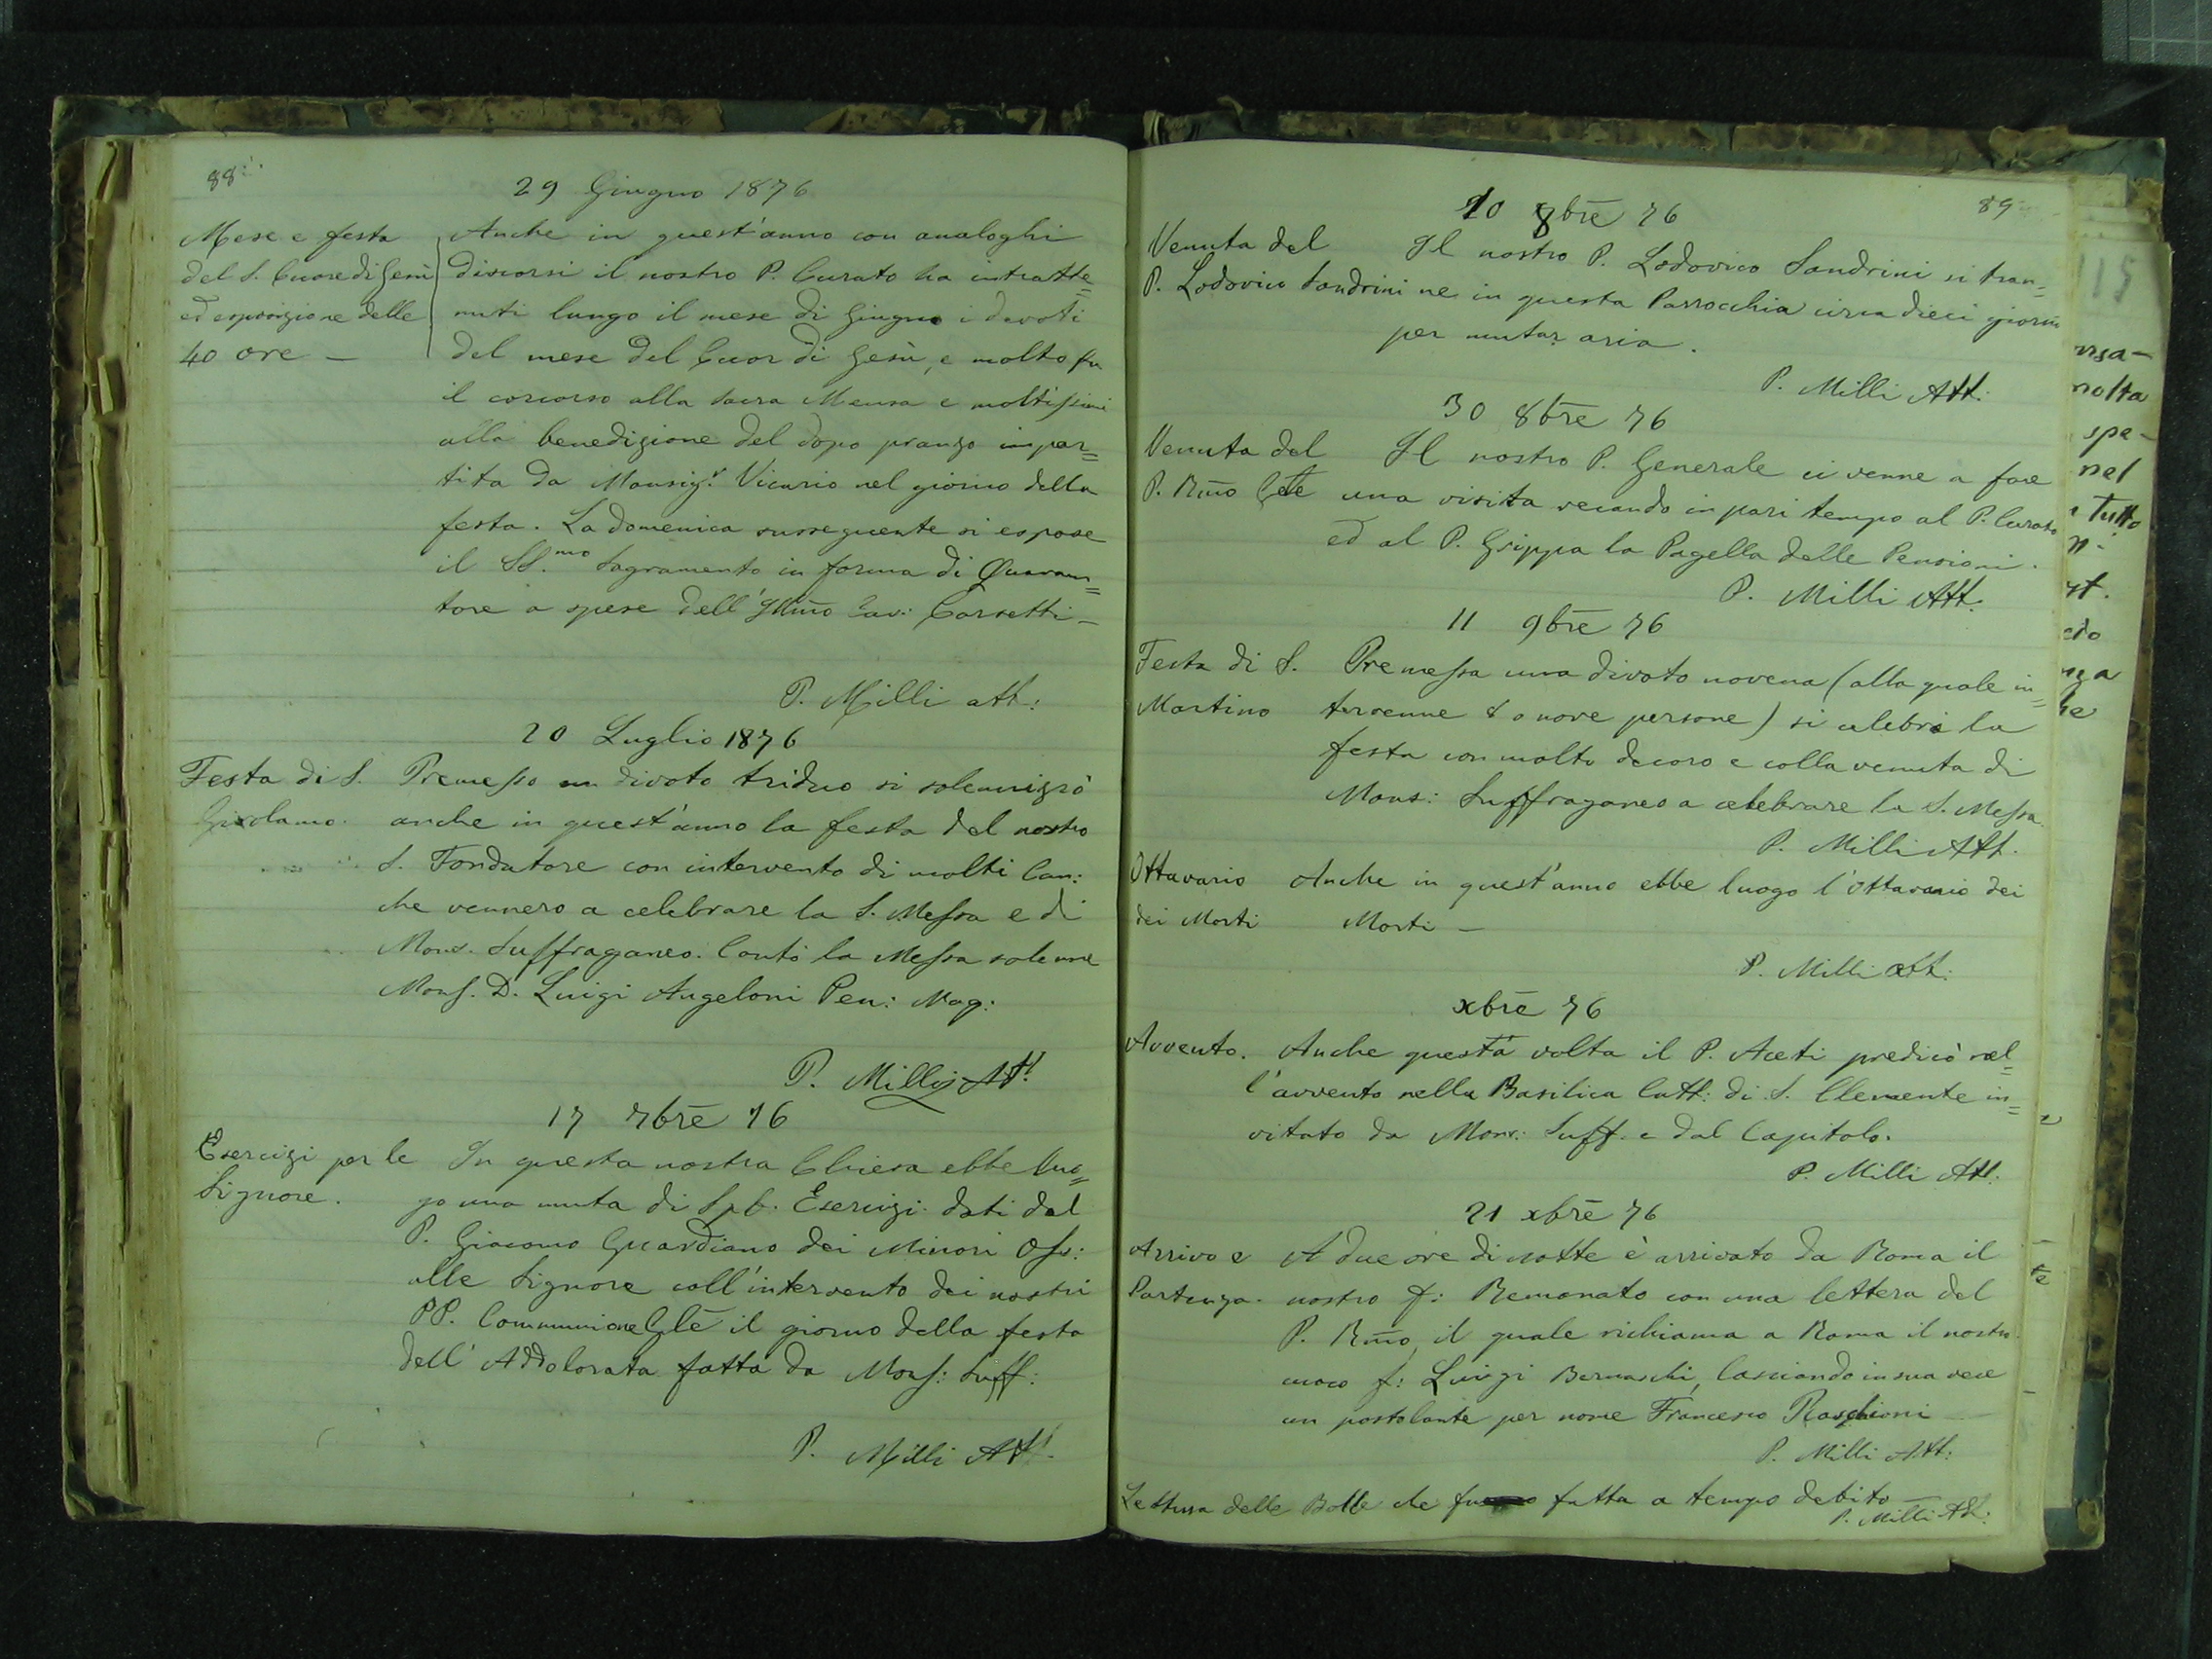 88
29 Giugno 1876
Mese e festa
del S. Cuore di Gesù
ed esposizione delle
40 ore —
Anche in quest'anno con analoghi
discorsi il nostro P. Curato ha intratte=
nuti lungo il mese di Giugno i devoti
del mese del Cuor di Gesù, e molto fu
il concorso alla sacra Mensa e moltissimi
alla benedizione del dopo pranzo impar=
tita da Monsig.r Vicario nel giorno della
festa. La domenica susseguente si espose
il SS.mo Sagramento in forma di Quaran=
tore a spese dell'Illm̃o Cav: Corsetti —
P. Milli att:
20 Luglio 1876
Festa di S.
Girolamo.
Premesso un divoto triduo si solennizzò
anche in quest'anno la festa del nostro
S. Fondatore con intervento di molti Can:
che vennero a celebrare la S. Messa e di
Mons. Suffraganeo. Cantò la Messa solenne
Mons. D. Luigi Angeloni Pen: Mag:
P. Milli Att:
17 7bre 76
Esercizi per le
Signore.
In questa nostra Chiesa ebbe luo=
go una muta di Esercizi dati dal
P. Giacomo Guardiano dei Minori Oss:
alle Signore coll'intervento dei nostri
PP. Communione Gle il giorno della festa
dell'Addolorata fatta da Mons: Suff:
P. Milli Att.
89
10 8bre 76
Venuta del
P. Lodovico Sandrini
Il nostro P. Lodovico Sandrini si tran=
ne in questa Parrocchia circa dieci giorni
per mutar aria.
P. Milli Att:
30 8bre 76
Venuta del
P. Rm̃o Gle
Il nostro P. Generale ci venne a fare
una visita recando in pari tempo al P. Curato
ed al P. Grippa la Pagella delle Pensioni.
P. Milli Att:
11 9bre 76
Festa di S.
Martino
Premessa una divota novena (alla quale in=
tervenne 8 o nove persone) si celebrò la
festa con molto decoro e colla venuta di
Mons: Suffraganeo a celebrare la S. Messa.
P. Milli Att.
Ottavario
dei Morti
Anche in quest'anno ebbe luogo l'ottavario dei
Morti —
P. Milli att:
xbre 76
Avvento.
Anche questa volta il P. Aceti predicò nel=
l'avvento nella Basilica Catt: di S. Clemente in=
vitato da Mons: Suff. e dal Capitolo.
P. Milli Att.
21 xbre 76
Arrivo e
Partenza.
A due ore di notte è arrivato da Roma il
nostro f: Remonato con una lettera del
P. Rm̃o, il quale richiama a Roma il nostro
cuoco f: Luigi Bernaschi, lasciando in sua vece
un postolante per nome Francesco Raschioni
P. Milli Att:
Lettura delle Bolle che fu fatta a tempo debito
P. Milli Att:
ursa-
molta
spe-
nel
Tutto